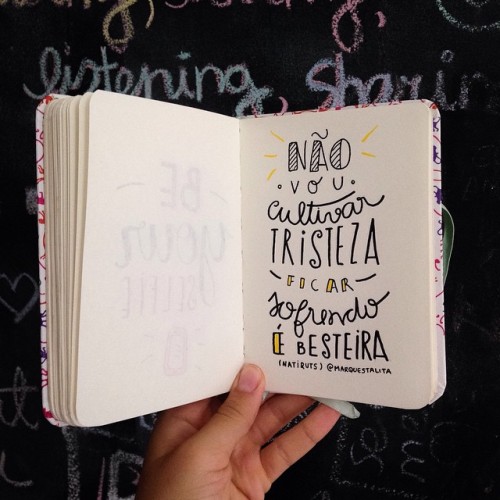 listening, sharin
BE
your
NÃO
VOU
cultivar
TRISTEZA
FICAR
sofrendo
É BESTEIRA
(NATIRUTS) @MARQUESTALITA